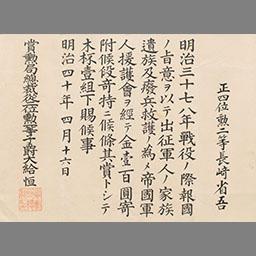 正四位勲二等長崎省吾
明治三十七八年戦役ノ際報國
ノ旨意ヲ以テ出征軍人ノ家族
遺族及癈兵救護ノ為メ帝國軍
人援護會ヲ經テ金壹百圓寄
附候段奇特ニ候條其賞トシテ
木杯壹組下賜候事
明治四十年四月十六日
賞勲局總裁從二位勲一等子爵大給恒